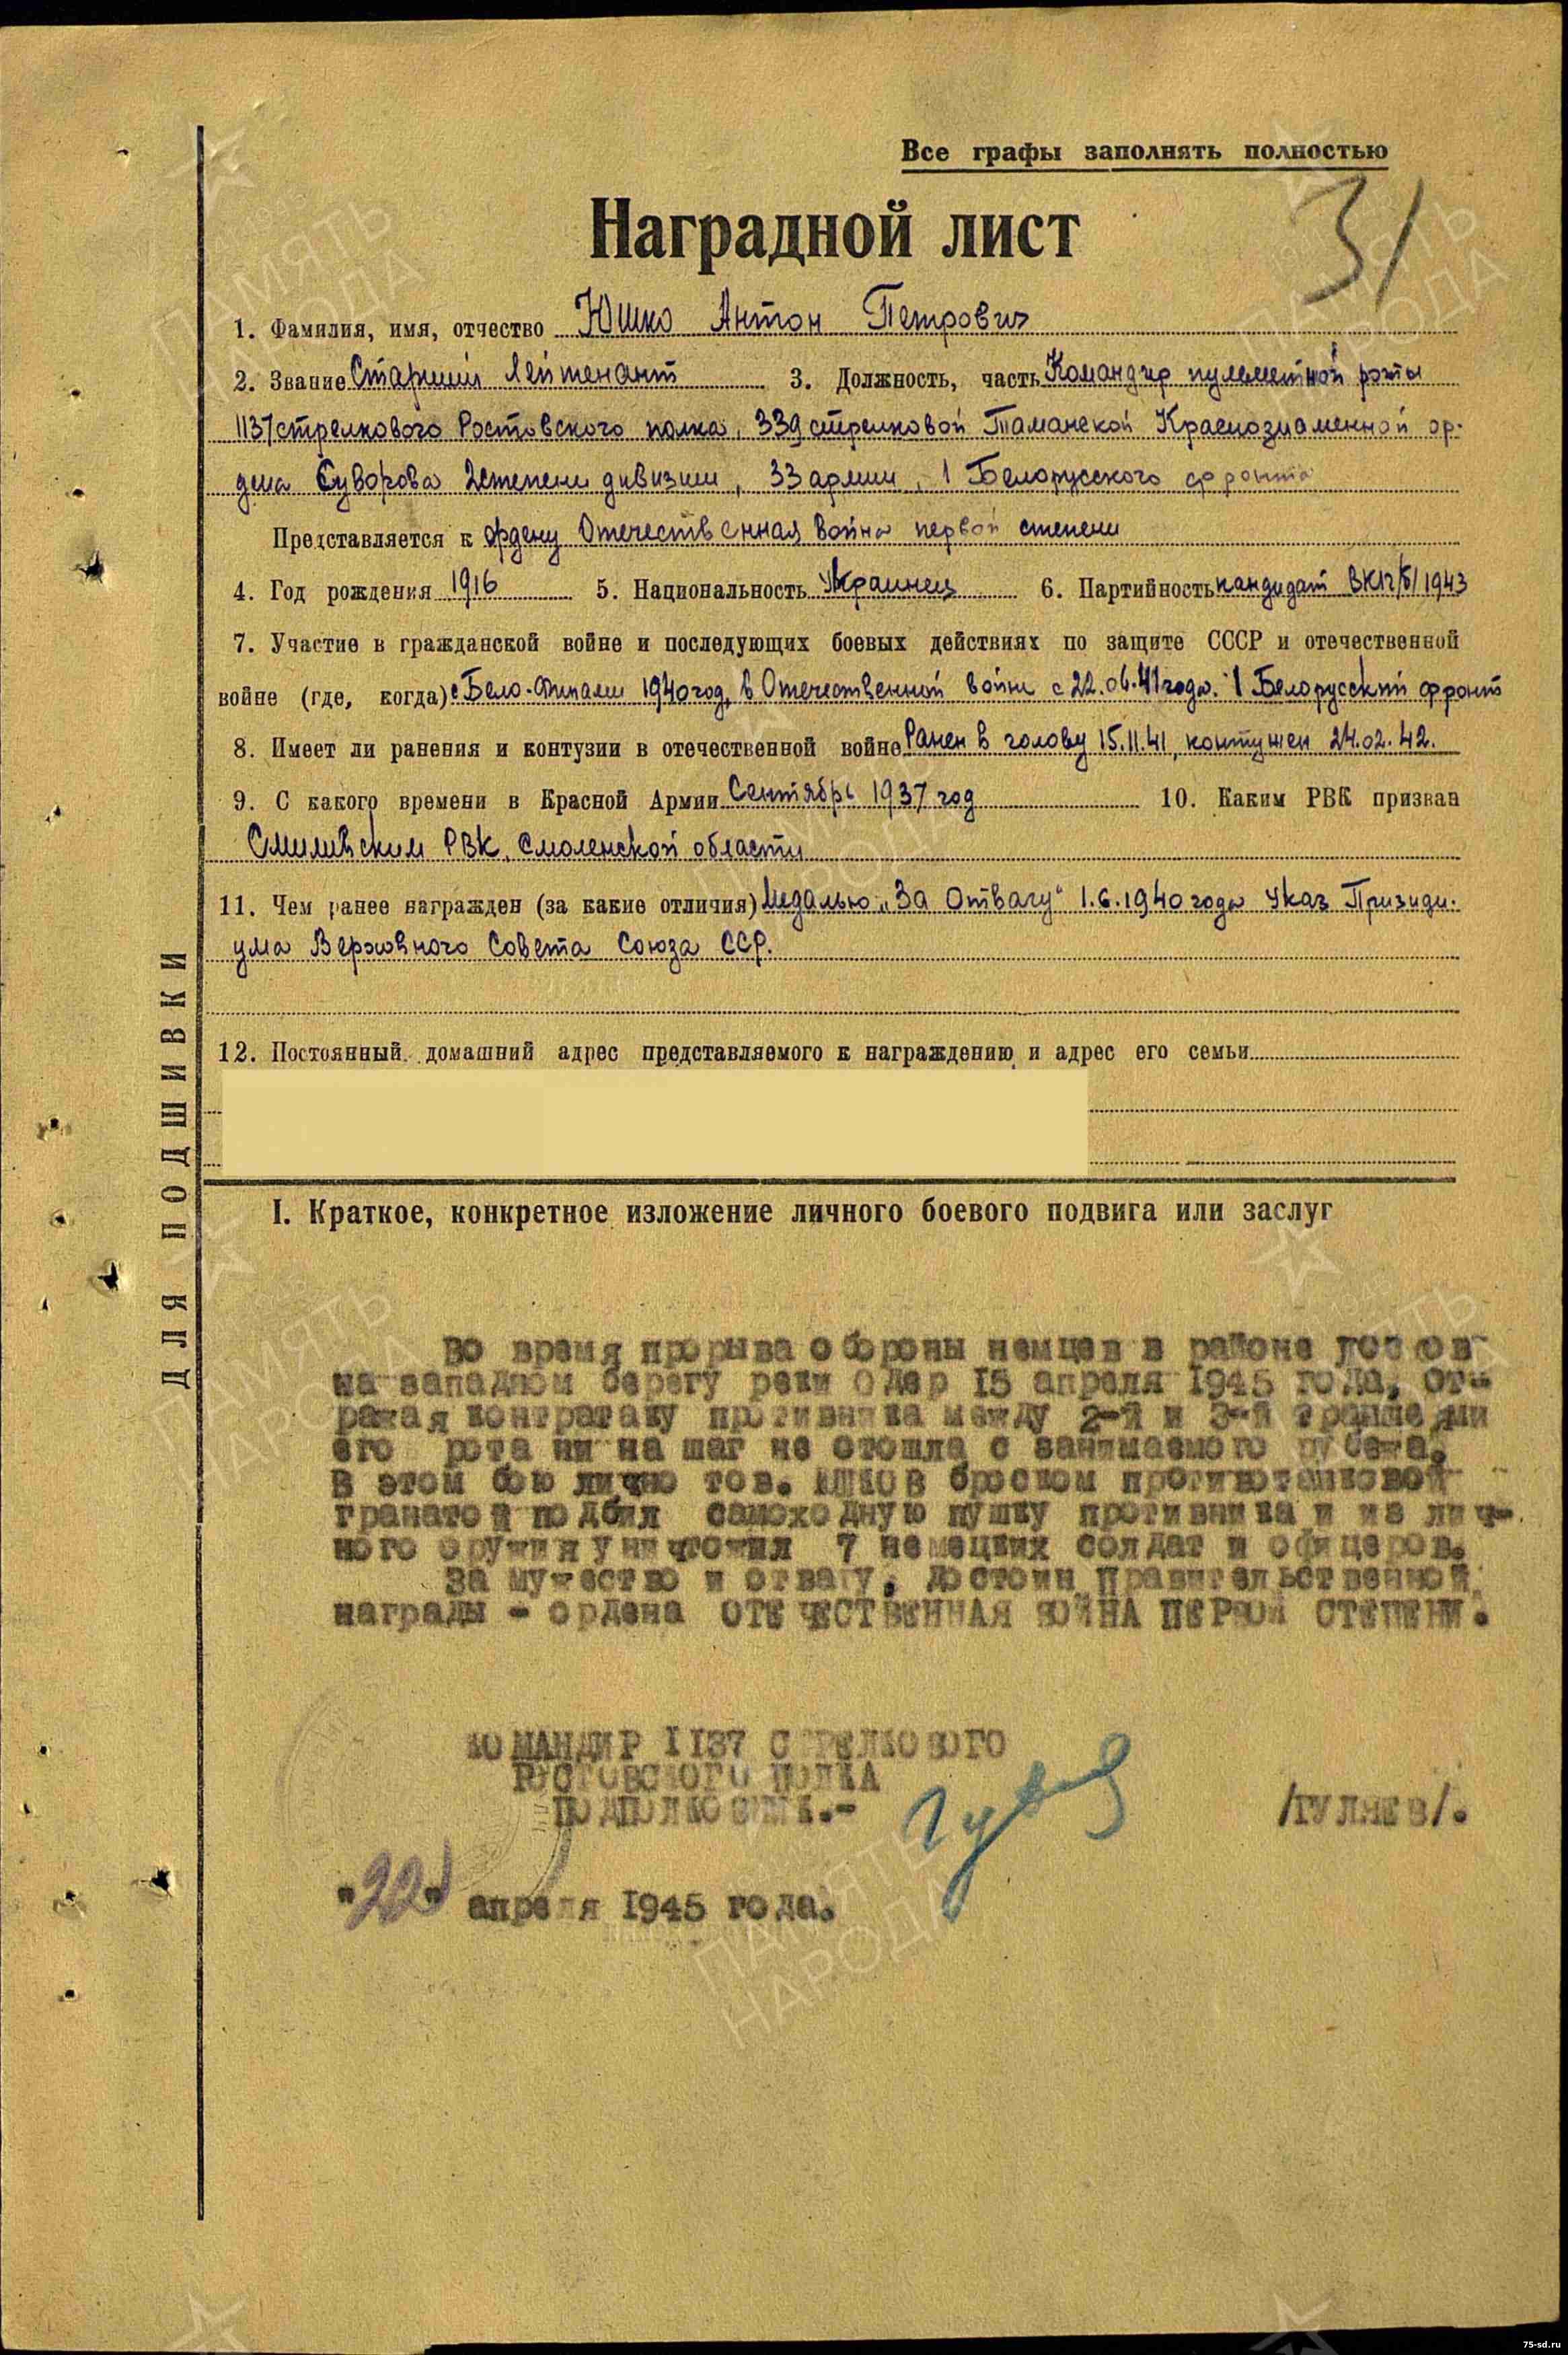 Все графы заполнять полностью
31
Наградной лист
1. Фамилия, имя, отчество Юшко Антон Петрович
2. Звание Старший лейтенант 3. Должность, часть Командир пулеметной роты
1137 стрелкового Ростовского полка, 339 стрелковой Таманской Краснознаменной ор-
дена Суворова 2 степени дивизии, 33 армии, 1 Белорусского фронта
Представляется к ордену Отечественная война первой степени
4. Год рождения 1916 5. Национальность Украинец 6. Партийность кандидат ВКП/б/ 1943
7. Участие в гражданской войне и последующих боевых действиях по защите СССР и отечественной
войне (где, когда) с Бело-Финами 1940 год, в Отечественной войне с 22.06.41 года. 1 Белорусский фронт
8. Имеет ли ранения и контузии в отечественной войне Ранен в голову 15.11.41, контужен 24.02.42.
9. С какого времени в Красной Армии Сентябрь 1937 год 10. Каким РВК призван
РВК, Смоленской области
11. Чем ранее награжден (за какие отличия) Медалью „За Отвагу" 1.6.1940 года Указ Призиди-
ума Верховного Совета Союза ССР.
12. Постоянный домашний адрес представляемого к награждению и адрес его семьи
ДЛЯ ПОДШИВКИ
I. Краткое, конкретное изложение личного боевого подвига или заслуг
Во время прорыва обороны немцев в районе
на западном берегу реки Одер 15 апреля 1945 года, от-
ражая контратаку противника между 2-й и 3-й траншеями
его рота ни на шаг не отошла с занимаемого рубежа.
В этом бою лично тов. броском противотанковой
гранатой подбил самоходную пушку противника и из лич-
ного оружия уничтожил 7 немецких солдат и офицеров.
За мужество и отвагу, достоин правительственной
награды - ордена ОТЕЧЕСТВЕННАЯ ВОЙНА ПЕРВОЙ СТЕПЕНИ.
КОМАНДИР 1137 СТРЕЛКОВОГО
РОСТОВСКОГО ПОЛКА
ПОДПОЛКОВНИК.-
/ГУЛЯЕВ/.
"22" апреля 1945 года.
ПАМЯТЬ НАРОДА
75-sd.ru